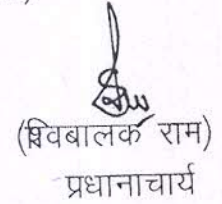 (शिवबालक राम)
प्रधानाचार्य